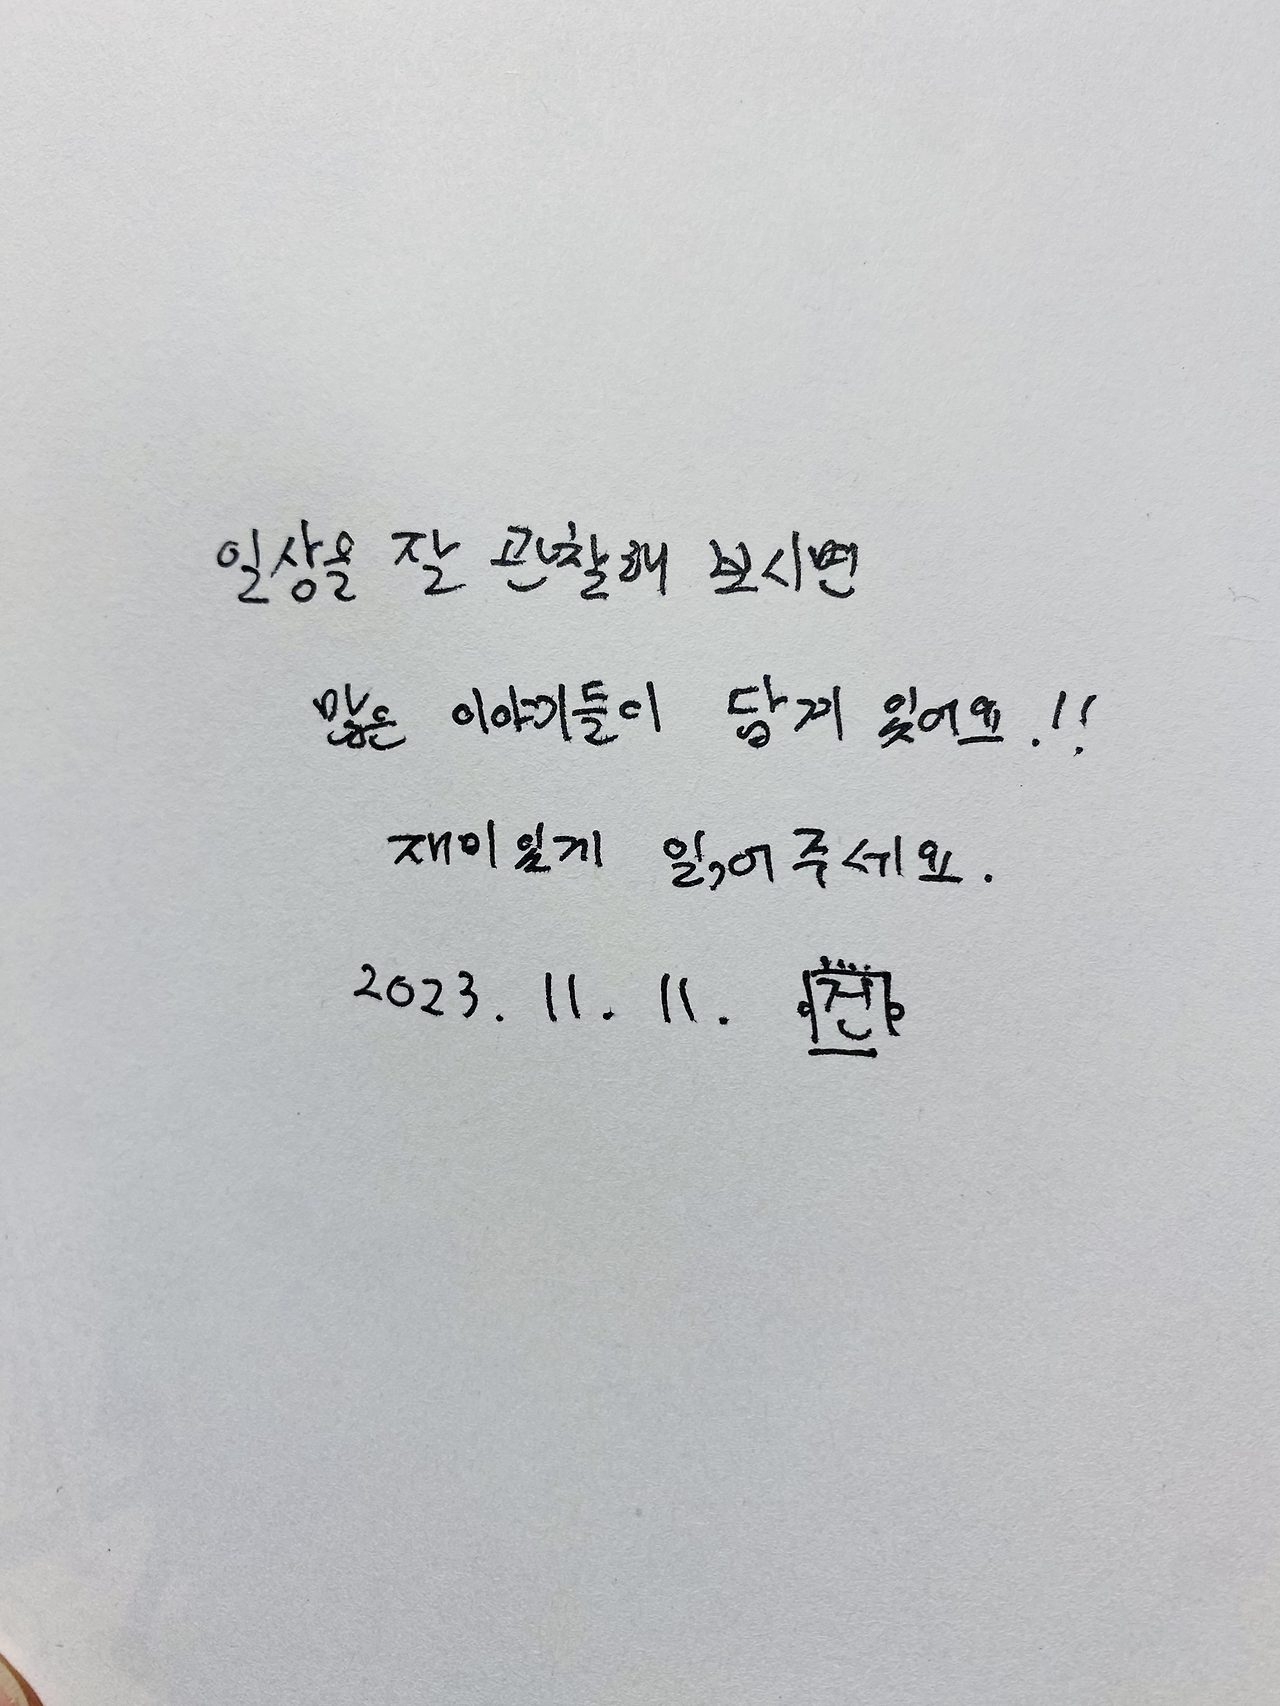 일상을 잘 관찰해 보시면
많은 이야기들이 담겨 있어요!!
재미있게 읽어주세요.
2023. 11. 11. 전